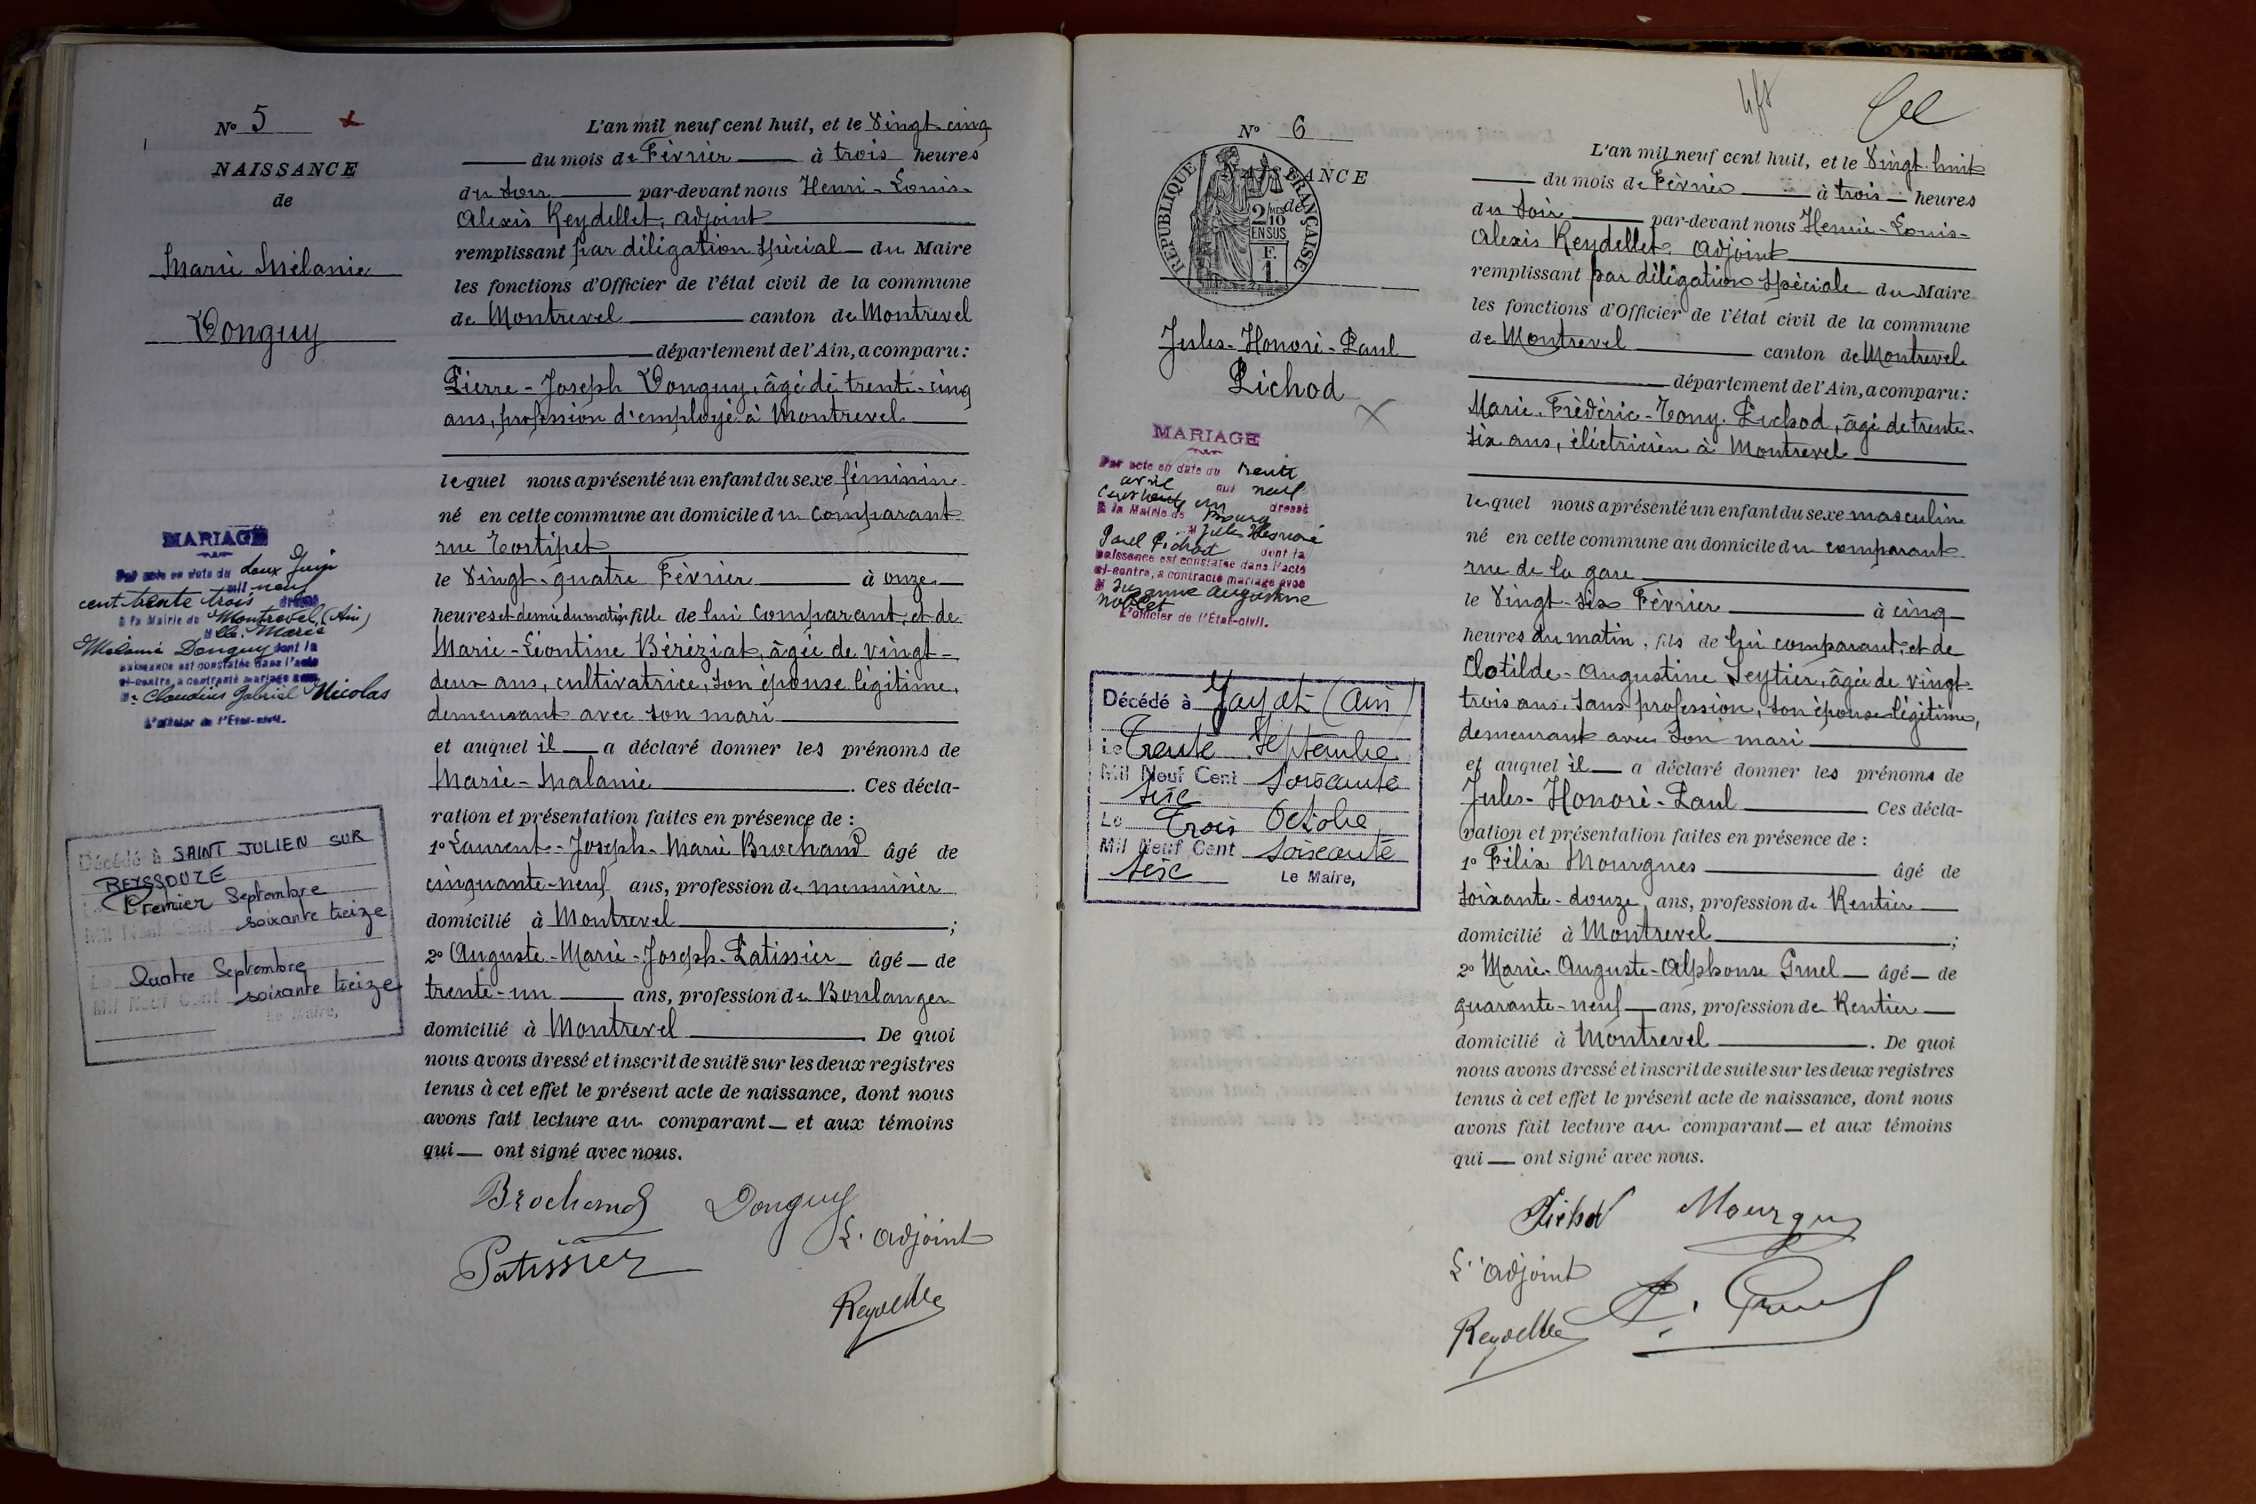 N° 5
NAISSANCE
de
Marie Mélanie
Donguy
MARIAGE
Par acte en date du deux Juin
mil neuf
cent trente trois dressé
à la Mairie de Montrevel (Ain)
Mlle Marie
Mélanie Donguy dont la
naissance est constatée dans l'acte
ci-contre, a contracté mariage avec
Mr Claudius Gabriel Nicolas
L'officier de l'Etat-civil.
Décédé à SAINT JULIEN SUR
REYSSOUZE
Le Premier Septembre
Mil Neuf Cent soixante treize
Le Quatre Septembre
Mil Neuf Cent soixante treize
Le Maire,
L'an mil neuf cent huit, et le Vingt-cinq
du mois de Février à trois heures
du soir par-devant nous Henri-Louis-
Alexis Reydellet, adjoint
remplissant par déligation spécial du Maire
les fonctions d'Officier de l'état civil de la commune
de Montrevel canton de Montrevel
département de l'Ain, a comparu:
Pierre-Joseph Donguy, âgé de trente-cinq
ans, profession d'employé à Montrevel
lequel nous a présenté un enfant du sexe féminin
né en cette commune au domicile du comparant
rue Tortipet
le Vingt-quatre Février à onze
heures et demie du matin fille de lui comparant, et de
Marie-Léontine Béréziat, âgée de vingt-
deux ans, cultivatrice, son épouse légitime,
demeurant avec son mari
et auquel il a déclaré donner les prénoms de
Marie-Malanie. Ces décla-
ration et présentation faites en présence de :
1° Laurent-Joseph-Marie Brochand âgé de
cinquante-neuf ans, profession de menuisier
domicilié à Montrevel;
2° Auguste-Marie-Joseph-Patissier âgé de
trente-un ans, profession de Boulanger
domicilié à Montrevel. De quoi
nous avons dressé et inscrit de suite sur les deux registres
tenus à cet effet le présent acte de naissance, dont nous
avons fait lecture au comparant et aux témoins
qui ont signé avec nous.
Brochand Donguy
L'adjoint
Patissier
Reydellet
N° 6
NAISSANCE
de
RÉPUBLIQUE FRANÇAISE
2/10 MES
EN SUS
F.
1
Jules-Honoré-Paul
Pichod
MARIAGE
Par acte en date du trente
avril mil neuf
cent trente un dressé
à la Mairie de Bourg
M Jules Honoré
Paul Pichod dont la
naissance est constatée dans l'acte
ci-contre, a contracté mariage avec
M Suzanne Augustine
L'officier de l'Etat-civil.
Décédé à Jayat (Ain)
Le Trente Septembre
Mil Neuf Cent Soixante
seize
Le Trois Octobre
Mil Neuf Cent Soixante
seize
Le Maire,
L'an mil neuf cent huit, et le Vingt-huit
du mois de Février à trois heures
du soir par-devant nous Henri-Louis-
Alexis Reydellet, adjoint
remplissant par déligation spéciale du Maire
les fonctions d'Officier de l'état civil de la commune
de Montrevel canton de Montrevel
département de l'Ain, a comparu:
Marie-Frédéric-Tony-Pichod, âgé de trente-
six ans, éléctricien à Montrevel
lequel nous a présenté un enfant du sexe masculin
né en cette commune au domicile du comparant
rue de la gare
le Vingt-six Février à cinq
heures du matin, fils de lui comparant, et de
Clotilde-Augustine Seytier, âgée de vingt-
trois ans, sans profession, son épouse légitime,
demeurant avec son mari
et auquel il a déclaré donner les prénoms de
Jules-Honoré-Paul Ces décla-
ration et présentation faites en présence de :
1° Félix Mourgues âgé de
soixante-douze ans, profession de Rentier
domicilié à Montrevel;
2° Marie-Auguste-Alphonse Gruel âgé de
quarante-neuf ans, profession de Rentier
domicilié à Montrevel. De quoi
nous avons dressé et inscrit de suite sur les deux registres
tenus à cet effet le présent acte de naissance, dont nous
avons fait lecture au comparant et aux témoins
qui ont signé avec nous.
Pichod Mourgues
L'adjoint
A. Gruel
Reydellet